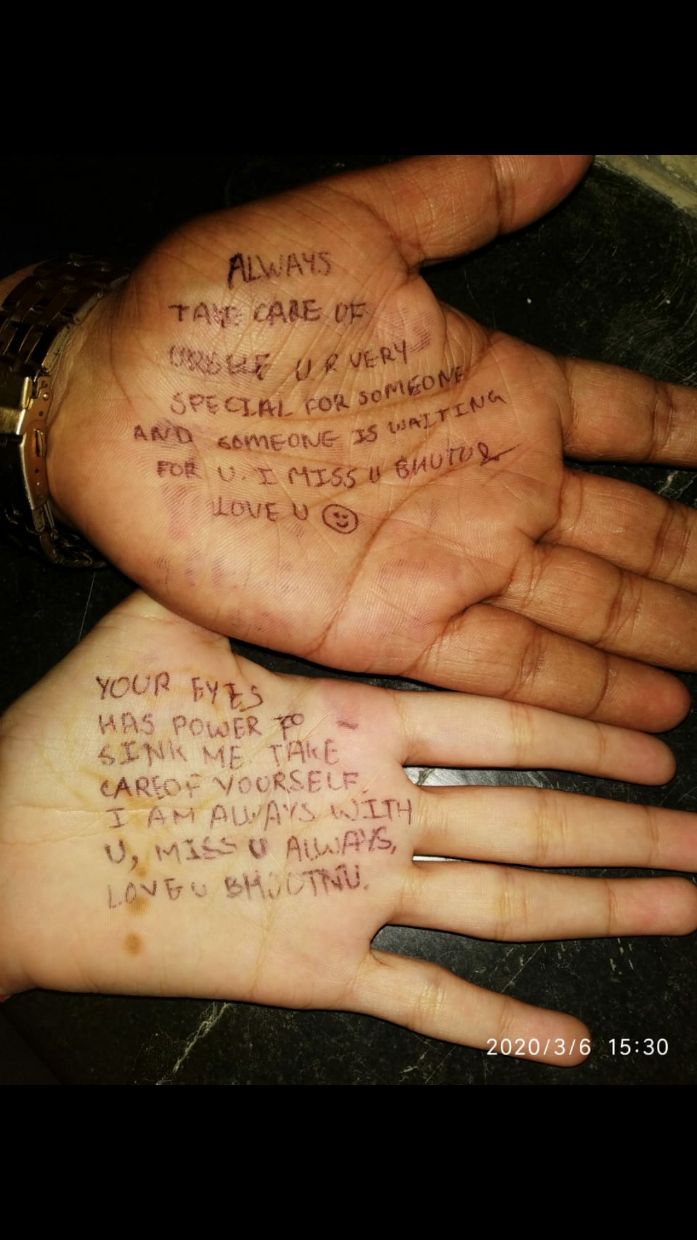 ALWAYS
TAKE CARE OF
U R VERY
SPECIAL FOR SOMEONE
AND SOMEONE IS WAITING
FOR U. I MISS U
LOVE U
YOUR EYES
HAS POWER TO
SINK ME TAKE
CARE OF YOURSELF.
I AM ALWAYS WITH
U, MISS U ALWAYS,
LOVE U BHOOTNU.
2020/3/6 15:30